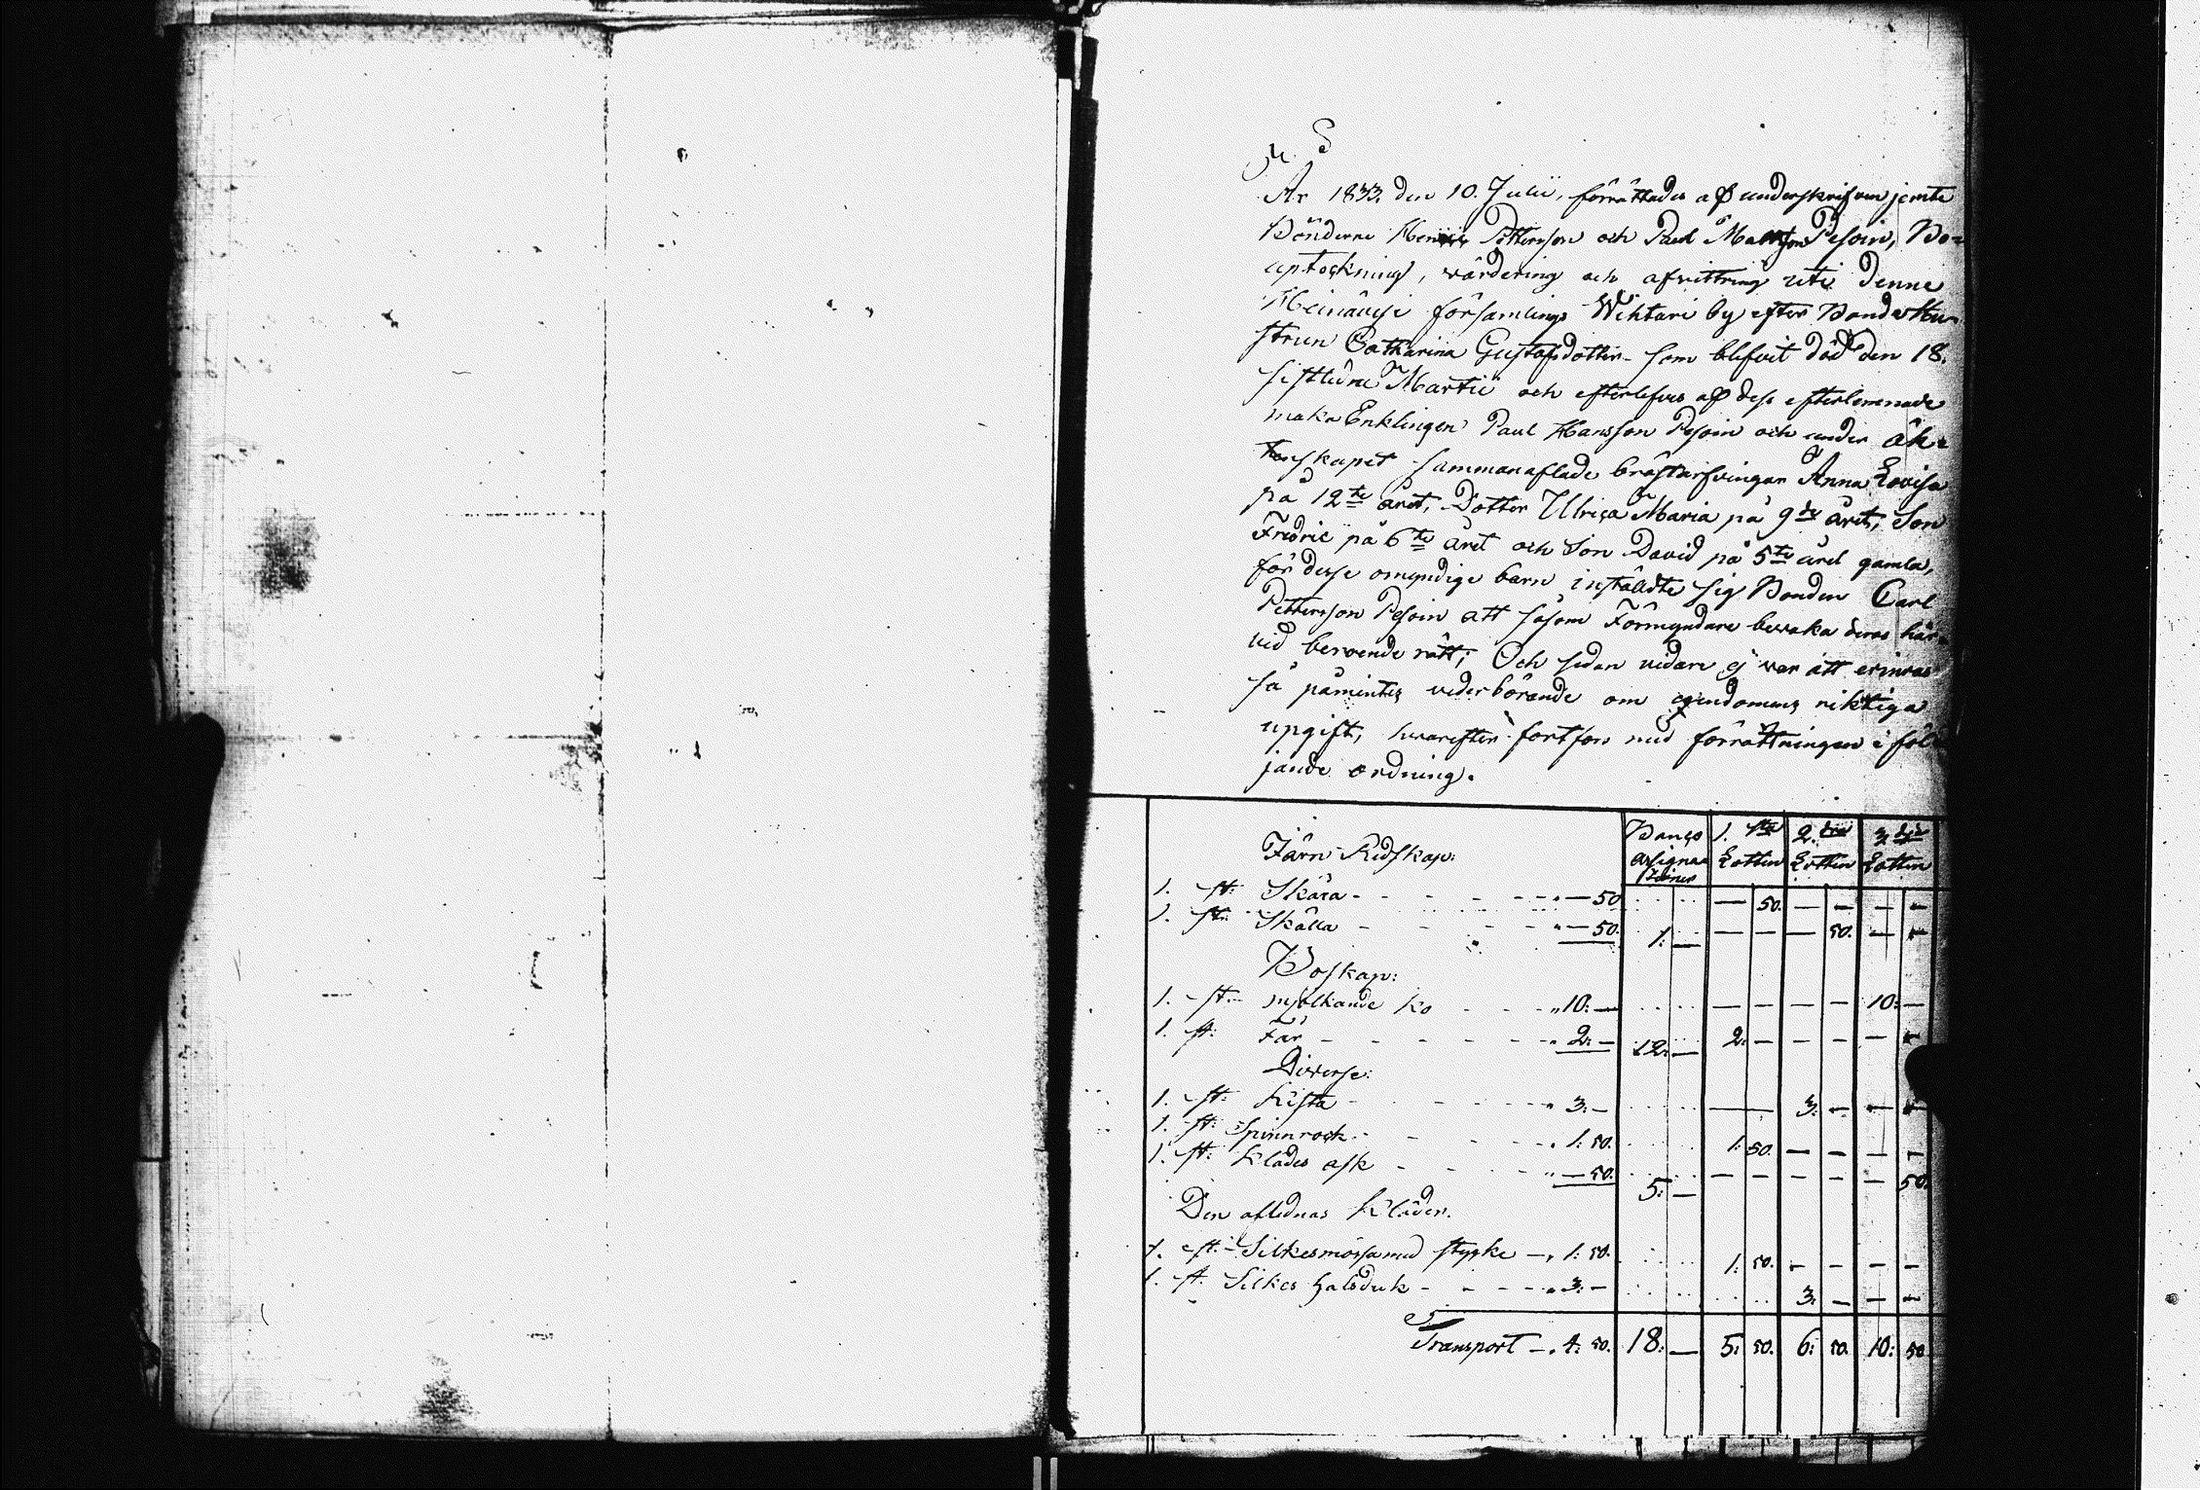 År 1833. den 10. Julii, förrättades af underskrifven jemte
Bönderne Pettersson och Paul Pesoin, Bo=
uptekning, värdering och afvittring uti denne
Heinävesi församlings Wihtari by efter Bonde Hu-
strun Catharina Gustafsdotter som blifvit död den 18.
sistledne Martii och efterlefves af dess efterlemnade
maka Enklingen Paul Hansson Pesoin och under äk=
tenskapet sammanaflade bröstarfvingar Anna Lovisa
på 12te året, Dotter Ulrica Maria på 9de året, Son
Fredric på 6te året och Son David på 5te året gamla,
för desse omyndige barn instäldte sig Bonden Carl
Pettersson Pesoin att såsom Förmyndare bevaka deras här-
vid beroende rätt; Och sedan vidare ej var att erinras
så påmintes vederbörande om egendomens riktiga
upgift, hvarefter fortfors med förrättningen i föl-
jande ordning.
Banco assignationer 1. sta Lotten 2. dra Lotten 3. dje Lotten
Järn Redskap:
1. st: Skära - - - - - - " — 50. — 50. — — — —
1. st: Skålla - - - - - " — 50. 1: — — — — 50. — —
Boskap:
1. st: mjölkande ko - - - " 10: — — — — — 10: —
1. st: Får - - - - - - " 2: — 12: — 2: — — — — —
Diverse:
1. st: Kista - - - - - " 3: — — 3: — — —
1. st: Spinnrock - - - - " 1: 50. 1: 50. — — — —
1. st: Kläder ask - - - - " — 50. 5: — — — — — — 50.
Den aflednas Kläder.
1. st: Silkesmössa med stycke — " 1: 50. 1: 50. — — — —
1. st. Silkes halsduk - - - - " 3: — 3: — — —
Transport — " 4: 50. 18: — 5: 50. 6: 50. 10: 50